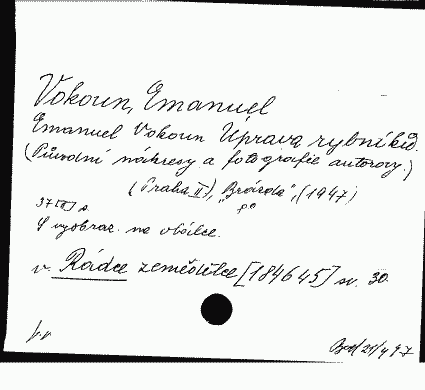 Vokoun, Emanuel
Emanuel Vokoun Úprava rybníků.
(Původní nákresy a fotografie autorovy.)
(Praha II), „Brázda", (1947)
S vyobraz. na obálce.
v. Rádce zemědělce [184645] sv. 30.